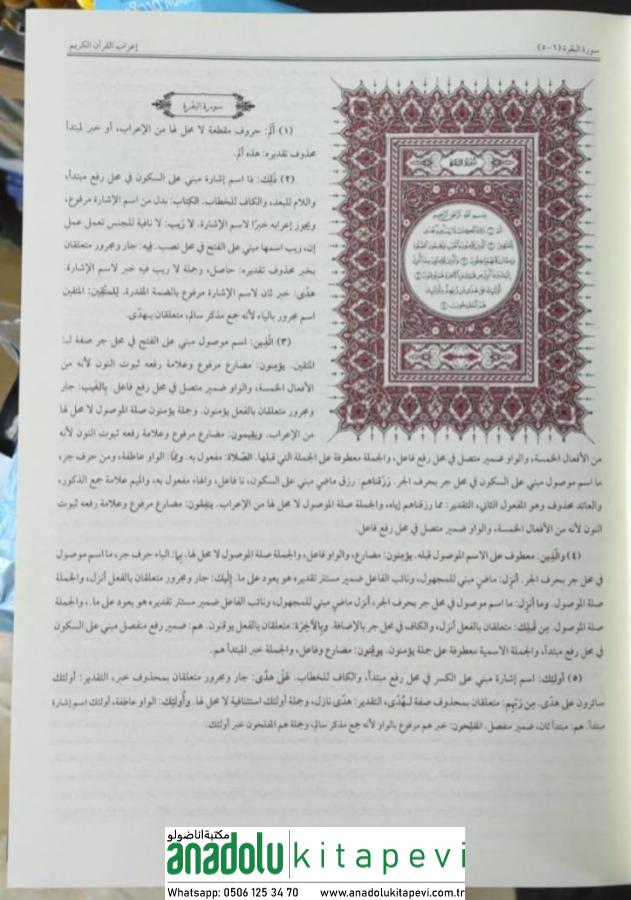 سورة البقرة (١-٥)
إعراب القرآن الكريم
سورة البقرة
(١) الٓمٓ: حروف مقطعة لا محل لها من الإعراب، أو خبر لمبتدأ
محذوف تقديره: هذه ألم.
(٢) ذَٰلِكَ: ذا اسم إشارة مبني على السكون في محل رفع مبتدأ،
واللام للبعد، والكاف للخطاب. الكِتاب: بدل من اسم الإشارة مرفوع،
ويجوز إعرابه خبرًا لاسم الإشارة. لا رَيبَ: لا نافية للجنس تعمل عمل
إن، ريب اسمها مبني على الفتح في محل نصب. فِيهِ: جار ومجرور متعلقان
بخبر محذوف تقديره: حاصل، وجملة لا ريب فيه خبر لاسم الإشارة.
هدًى: خبر ثان لاسم الإشارة مرفوع بالضمة المقدرة. لِلمتَّقِين: المتقين
اسم مجرور بالياء لأنه جمع مذكر سالم، متعلقان بـهدًى.
(٣) الَّذِين: اسم موصول مبني على الفتح في محل جر صفة لـ:
المتقين. يؤمنون: مضارع مرفوع وعلامة رفعه ثبوت النون لأنه من
الأفعال الخمسة، والواو ضمير متصل في محل رفع فاعل. بِالغَيب: جار
ومجرور متعلقان بالفعل يؤمنون. وجملة يؤمنون صلة الموصول لا محل لها
من الإعراب. ويقيمون: مضارع مرفوع وعلامة رفعه ثبوت النون لأنه
من الأفعال الخمسة، والواو ضمير متصل في محل رفع فاعل، والجملة معطوفة على الجملة التي قبلها. الصَّلاة: مفعول به. ومِمَّا: الواو عاطفة، ومن حرف جر،
ما اسم موصول مبني على السكون في محل جر بحرف الجر. رَزَقناهم: رزق ماضي مبني على السكون، نا فاعل، والهاء مفعول به، والميم علامة جمع الذكور،
والعائد محذوف وهو المفعول الثاني، التقدير: مما رزقناهم إياه، والجملة صلة الموصول لا محل لها من الإعراب. ينفِقون: مضارع مرفوع وعلامة رفعه ثبوت
النون لأنه من الأفعال الخمسة، والواو ضمير متصل في محل رفع فاعل.
(٤) والَّذِين: معطوف على الاسم الموصول قبله. يؤمِنون: مضارع، والواو فاعل، والجملة صلة الموصول لا محل لها. بِما: الباء حرف جر، ما اسم موصول
في محل جر بحرف الجر. أنزِل: ماضي مبني للمجهول، ونائب الفاعل ضمير مستتر تقديره هو يعود على ما. إِلَيك: جار ومجرور متعلقان بالفعل أنزل، والجملة
صلة الموصول. وما أنزِل: ما اسم موصول في محل جر بحرف الجر، أنزل ماضي مبني للمجهول، ونائب الفاعل ضمير مستتر تقديره هو يعود على ما.، والجملة
صلة الموصول. مِن قَبلِك: متعلقان بالفعل أنزل، والكاف في محل جر بالإضافة. وبِالآخِرَة: متعلقان بالفعل يوقنون. هم: ضمير رفع منفصل مبني على السكون
في محل رفع مبتدأ، والجملة الاسمية معطوفة على جملة يؤمنون. يوقِنون: مضارع وفاعل، والجملة خبر المبتدأ هم.
(٥) أولئِك: اسم إشارة مبني على الكسر في محل رفع مبتدأ، والكاف للخطاب. عَلَى هدًى: جار ومجرور متعلقان بمحذوف خبر، التقدير: أولئك
سائرون على هدًى. مِن رَبِّهِم: متعلقان بمحذوف صفة لـهُدًى، التقدير: هدًى نازل، وجملة أولئك استئنافية لا محل لها. وأُولئِك: الواو عاطفة، أولئك اسم إشارة
مبتدأ. هم: مبتدأ ثان، ضمير منفصل. المفلِحون: خبر هم مرفوع بالواو لأنه جمع مذكر سالم، وجملة هم المفلحون خبر أولئك.
مكتبة اناضولو
anadolu kitapevi
Whatsapp: 0506 125 34 70 www.anadolukitapevi.com.tr